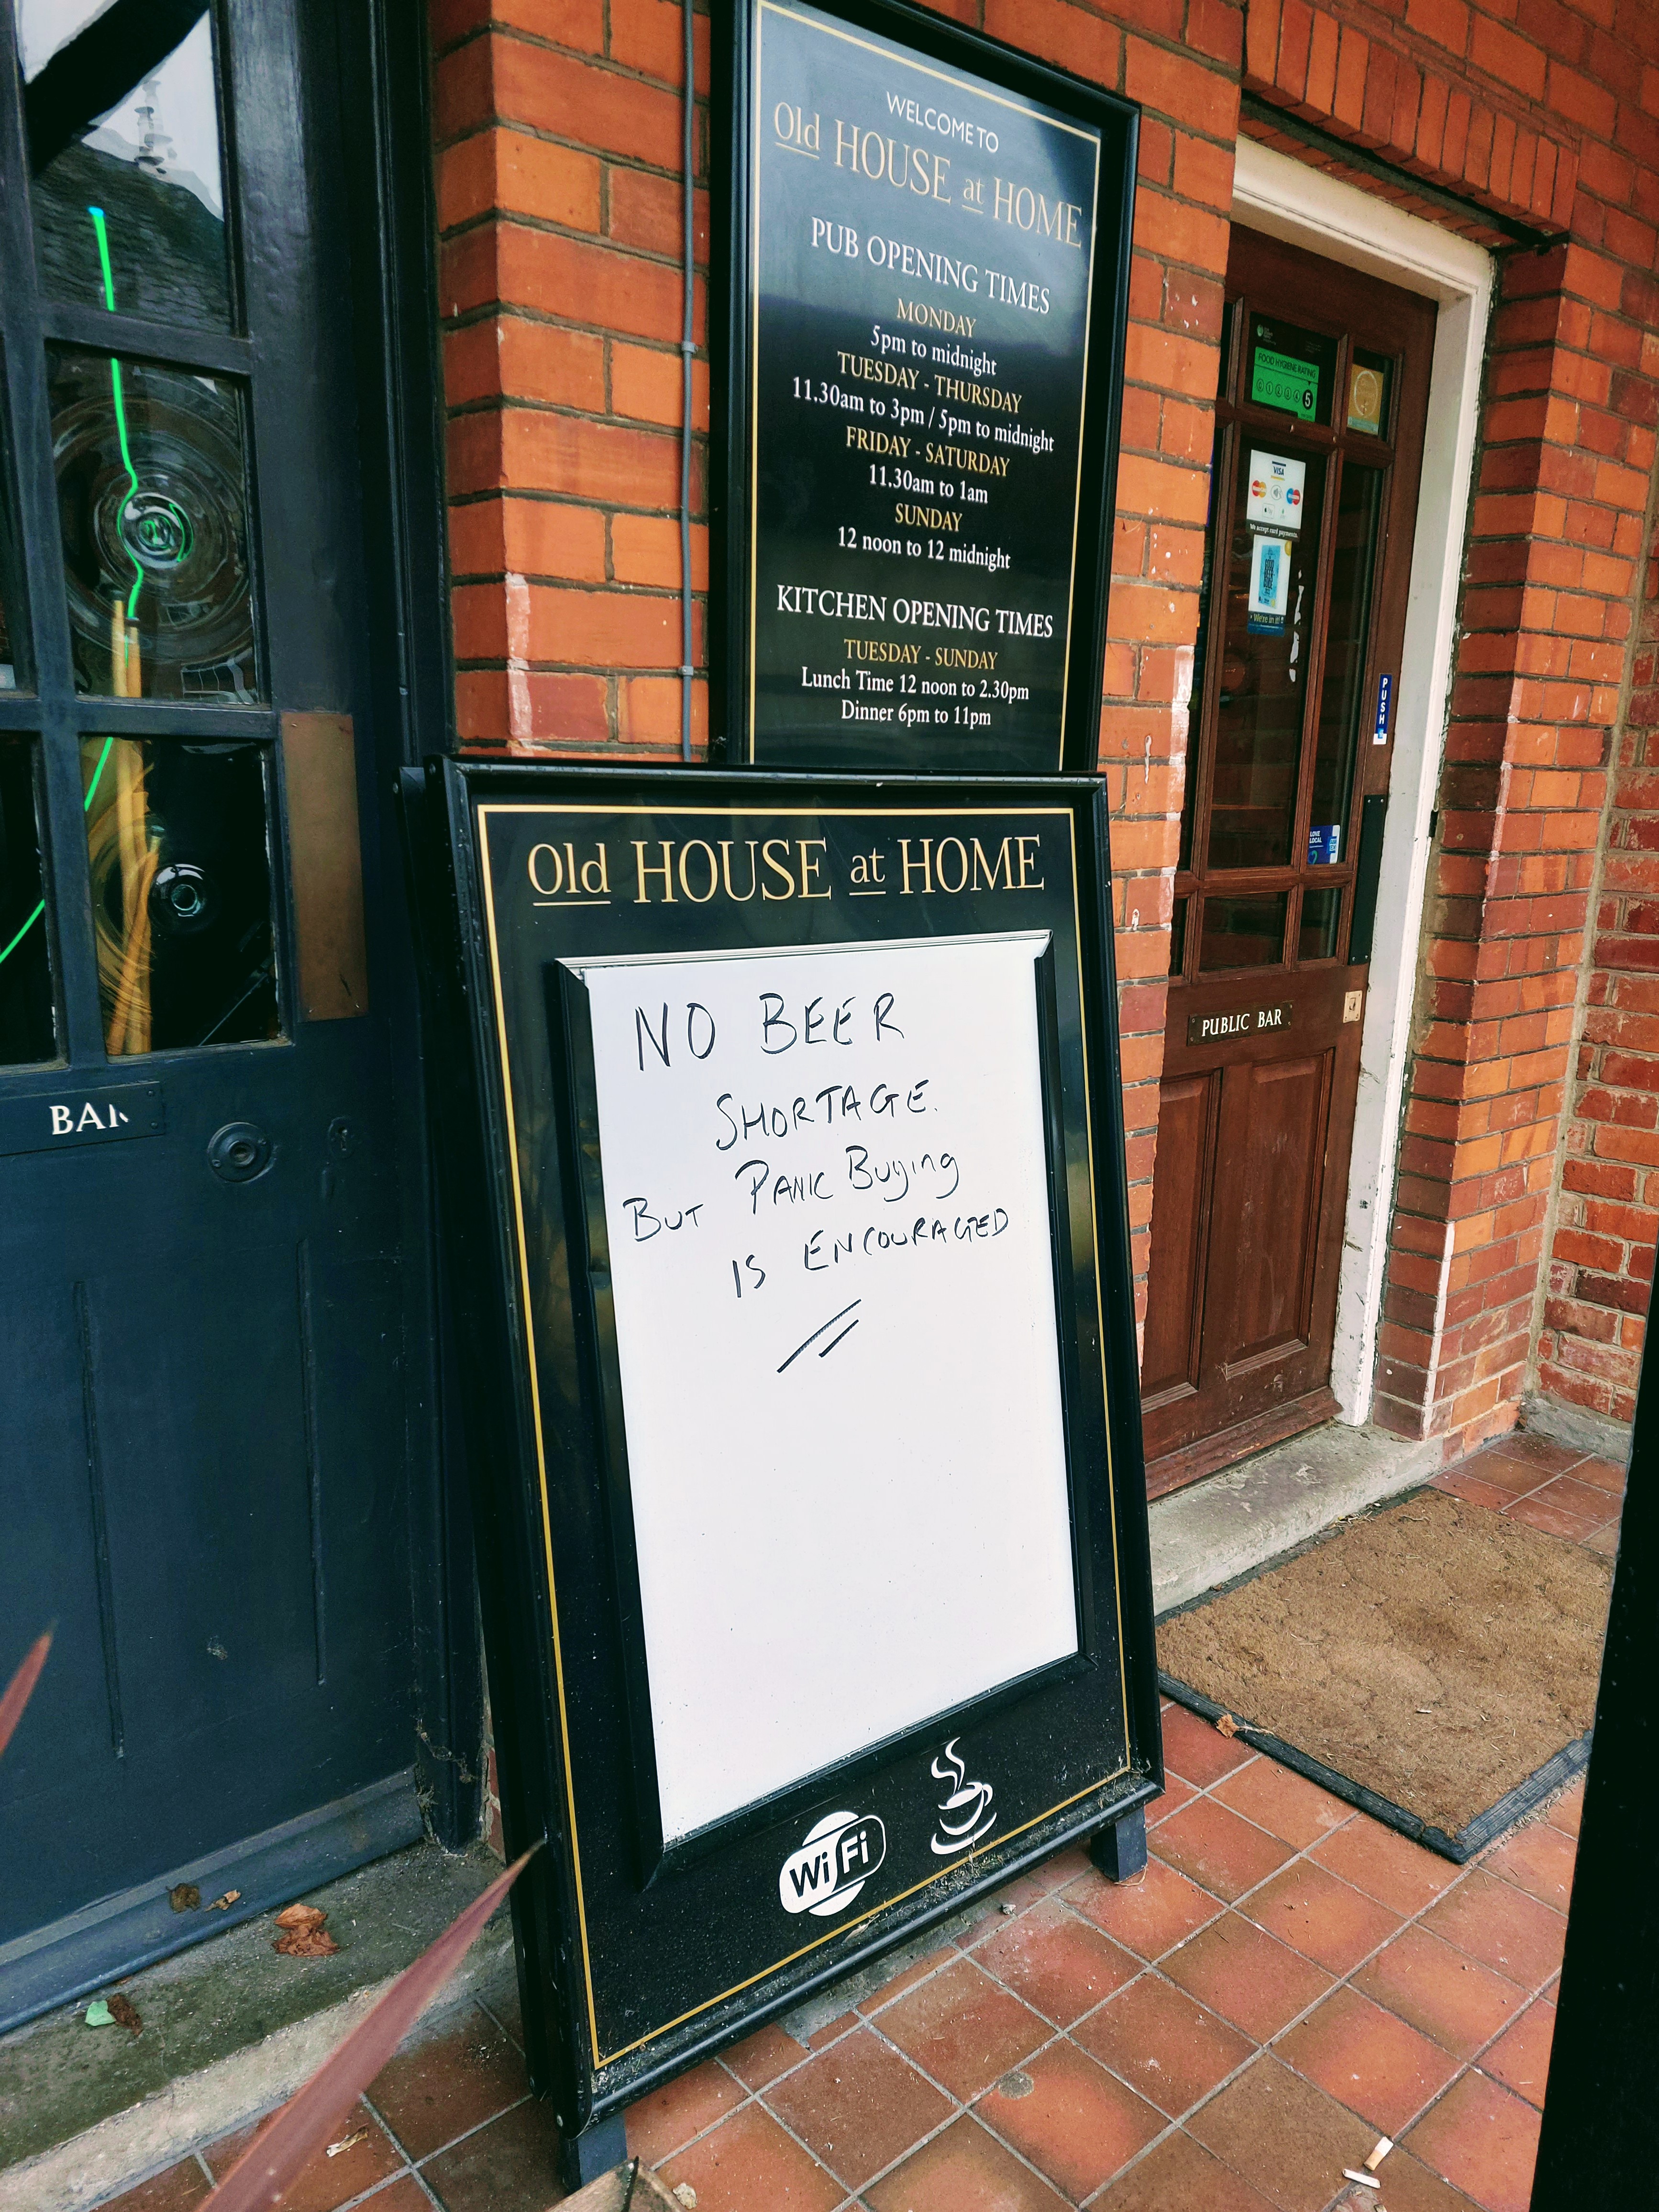 WELCOME TO
Old HOUSE at HOME
PUB OPENING TIMES
MONDAY
5pm to midnight
TUESDAY - THURSDAY
11.30am to 3pm / 5pm to midnight
FRIDAY - SATURDAY
11.30am to 1am
SUNDAY
12 noon to 12 midnight
KITCHEN OPENING TIMES
TUESDAY - SUNDAY
Lunch Time 12 noon to 2.30pm
Dinner 6pm to 11pm
Old HOUSE at HOME
NO BEER
SHORTAGE.
BUT PANIC BUyING
IS ENCOURAGED
WiFi
BAR
FOOD HYGIENE RATING
0 1 2 3 4 5
VISA
We accept card payments.
We're in it!
PUSH
LOVE
LOCAL
PUBLIC BAR